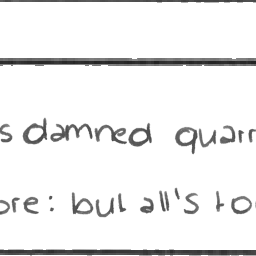 s damned quarr
ore: but all's too